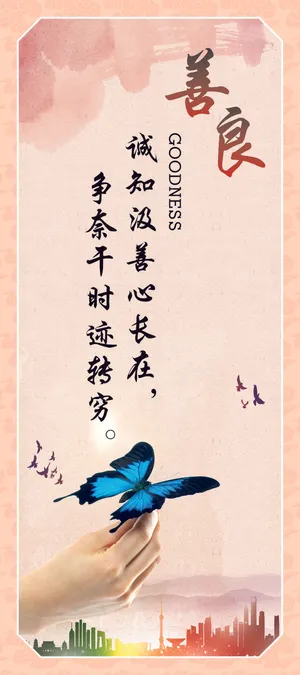 善良
GOODNESS
诚知汲善心长在，
争奈干时迹转穷。